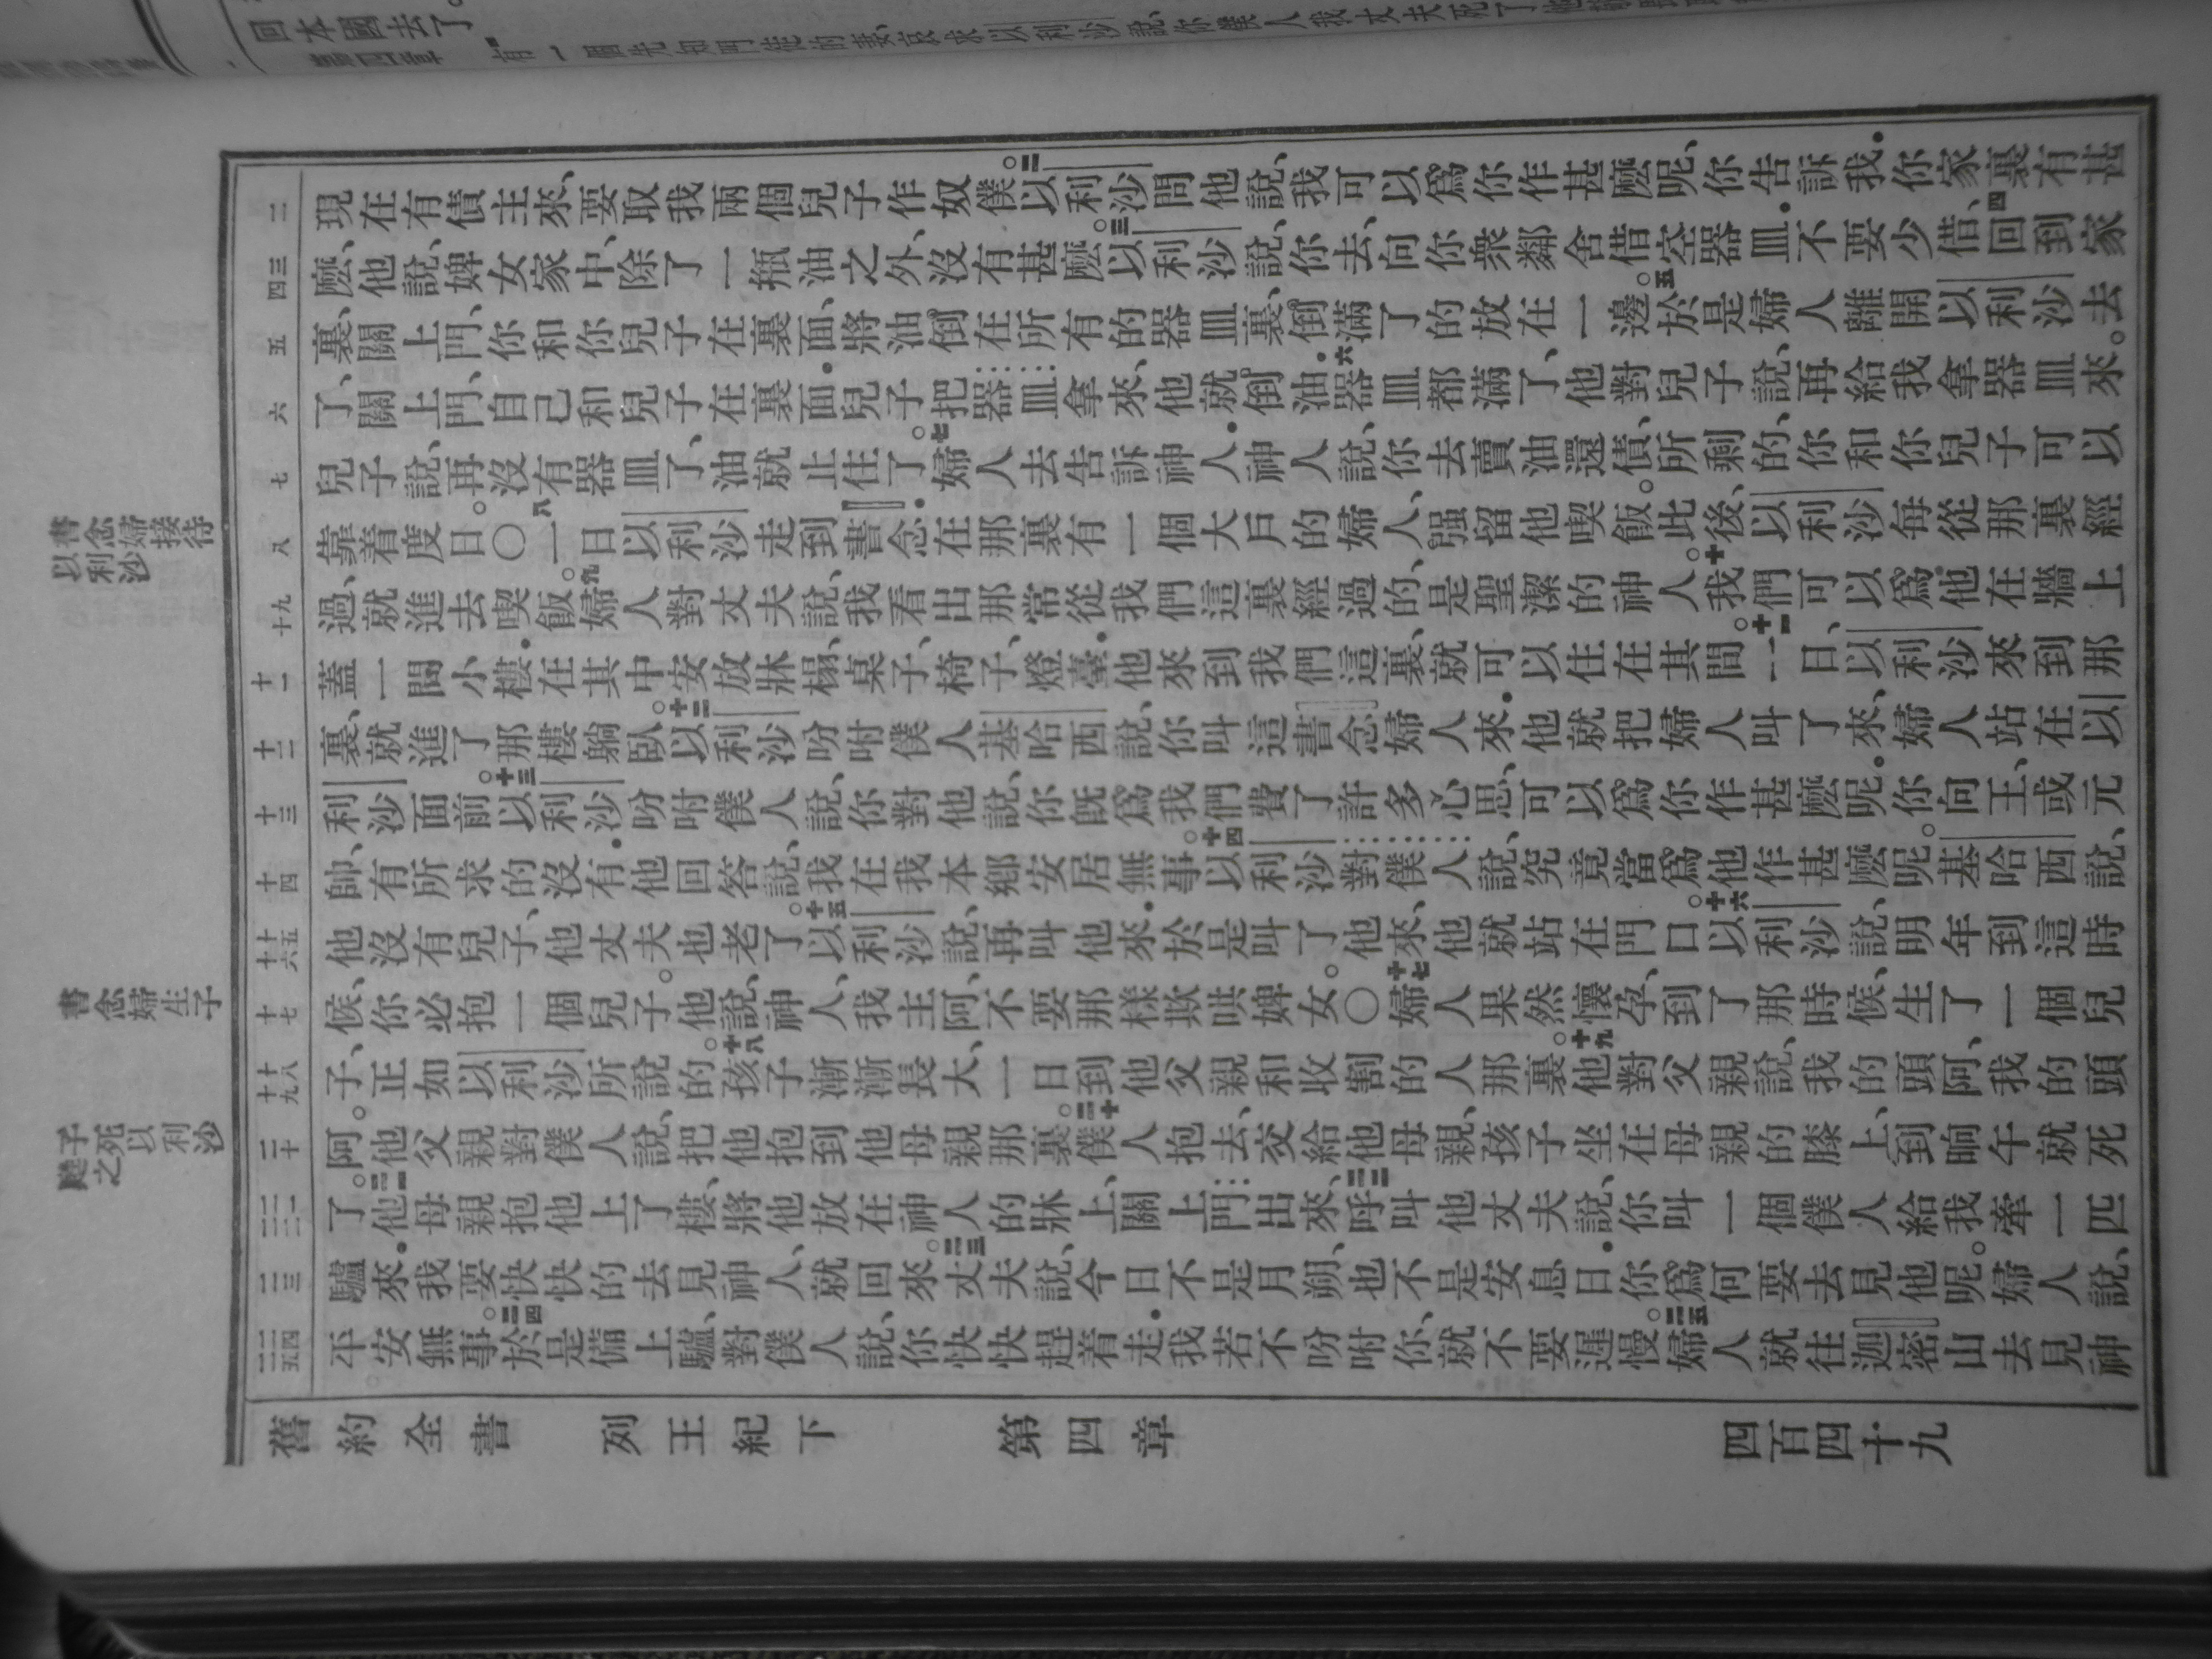 回本國去了。
現在有債主來、要取我兩個兒子作奴僕。二以利沙問他說、我可以爲你作甚麼呢、你告訴我．你家裏有甚
麼、他說、婢女家中、除了一瓶油之外、沒有甚麼。三以利沙說、你去、向你衆鄰舍借空器皿．不要少借、四回到家
裏、關上門、你和你兒子在裏面、將油倒在所有的器皿裏、倒滿了的放在一邊。五於是婦人離開以利沙去
了、關上門、自己和兒子在裏面．兒子把器皿拿來、他就倒油．六器皿都滿了、他對兒子說、再給我拿器皿來。
兒子說、再沒有器皿了、油就止住了。七婦人去告訴神人．神人說、你去賣油還債、所剩的、你和你兒子可以
靠着度日。〇八一日以利沙走到書念．在那裏有一個大戶的婦人、强留他喫飯。此後、以利沙每從那裏經
過、就進去喫飯。九婦人對丈夫說、我看出那常從我們這裏經過的、是聖潔的神人。十我們可以爲他在牆上
蓋一間小樓．在其中安放牀榻、桌子、椅子、燈臺．他來到我們這裏、就可以住在其間。十一一日、以利沙來到那
裏、就進了那樓躺臥。十二以利沙吩咐僕人基哈西說、你叫這書念婦人來．他就把婦人叫了來、婦人站在以
利沙面前。十三以利沙吩咐僕人說、你對他說、你既爲我們費了許多心思、可以爲你作甚麼呢．你向王、或元
帥、有所求的沒有．他回答說、我在我本鄉安居無事。十四以利沙對僕人說、究竟當爲他作甚麼呢。基哈西說、
他沒有兒子、他丈夫也老了。十五以利沙說、再叫他來．於是叫了他來、他就站在門口。十六以利沙說、明年到這時
候、你必抱一個兒子。他說、神人、我主阿、不要那樣欺哄婢女。〇十七婦人果然懷孕、到了那時候、生了一個兒
子、正如以利沙所說的。十八孩子漸漸長大、一日到他父親和收割的人那裏。十九他對父親說、我的頭阿、我的頭
阿。他父親對僕人說、把他抱到他母親那裏。二十僕人抱去、交給他母親、孩子坐在母親的膝上、到晌午就死
了。二一他母親抱他上了樓、將他放在神人的牀上、關上門出來、二二呼叫他丈夫說、你叫一個僕人給我牽一匹
驢來．我要快快的去見神人、就回來。二三丈夫說、今日不是月朔、也不是安息日．你爲何要去見他呢。婦人說、
平安無事。二四於是備上驢、對僕人說、你快快趕着走．我若不吩咐你、就不要遲慢。二五婦人就往迦密山去見神
二
三四
五
六
七
八
九十
十一
十二
十三
十四
十五十六
十七
十八十九
二十
二一二二
二三
二四二五
書念婦接待以利沙
書念婦生子
子死以利沙
舊約全書　列王紀下　第四章　四百四十九